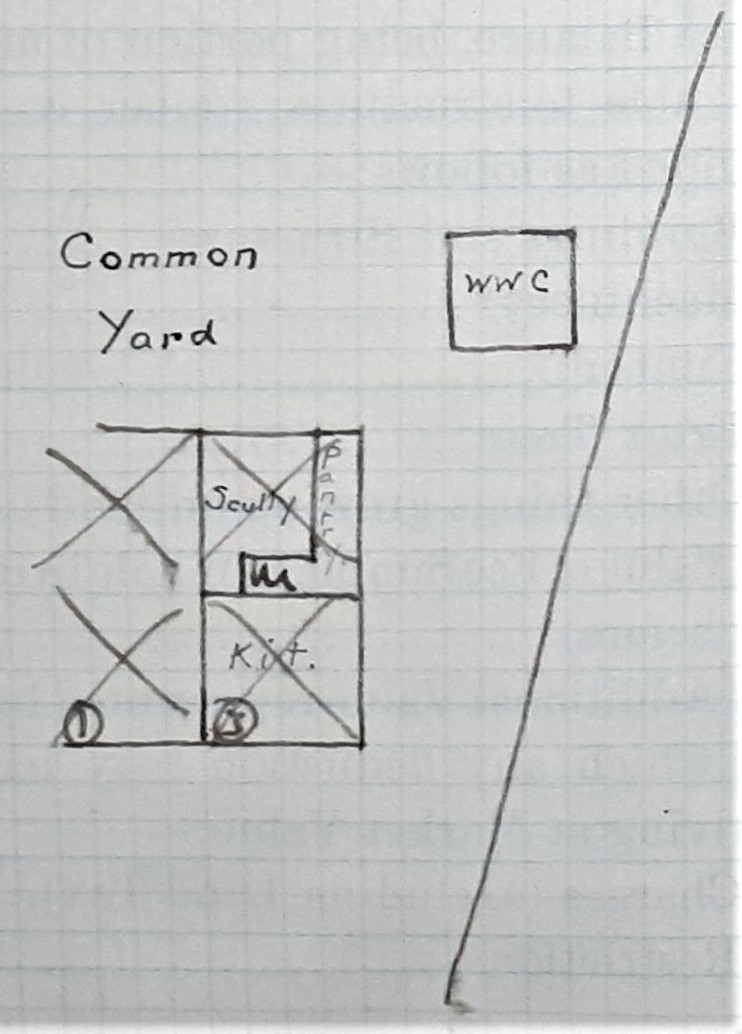 Common
Yard
WWC
Scully
Pantry
m
Kit.
①